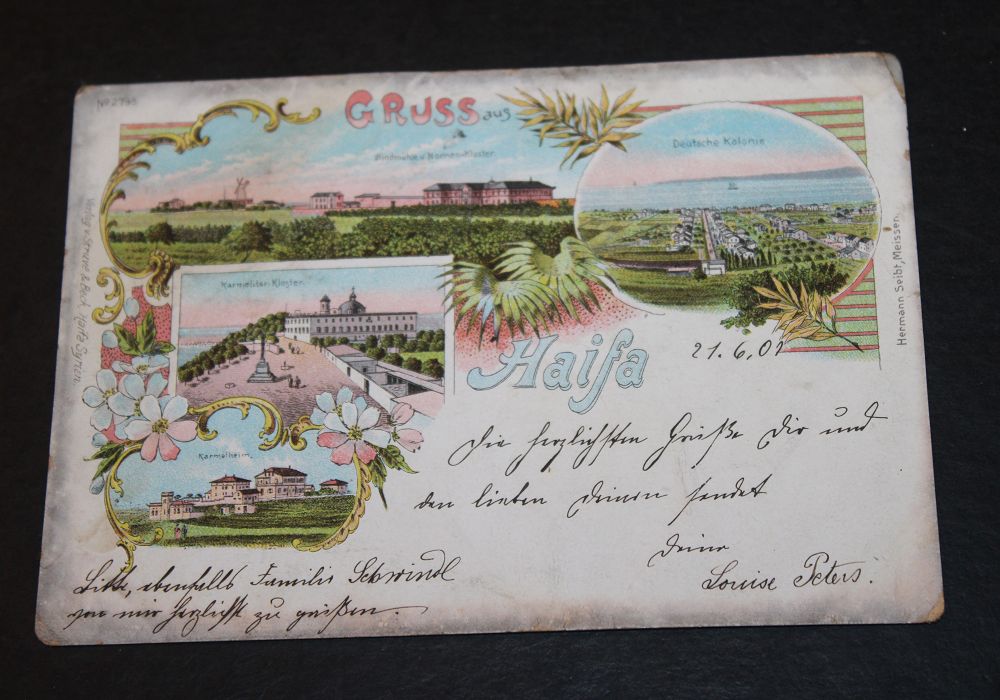 No 2795
GRUSS aus
Windmühle u. Nonnen-Kloster.
Deutsche Kolonie
Karmeliter-Kloster.
Hermann Seibt, Meissen.
Verlag v. Struve & Beck, Haifa Syrien.
Haifa
21.6.01
Die herzlichsten Grüße Dir und
den lieben Deinen sendet
Deine
Louise Peters.
Karmelheim.
Bitte, ebenfalls Familie Schwindl
von mir herzlichst zu grüßen.